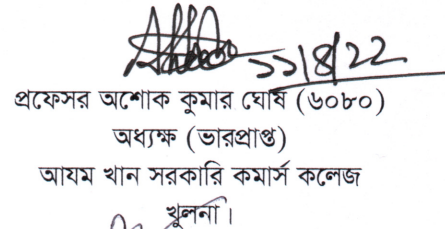 ১১/৪/২২
প্রফেসর অশোক কুমার ঘোষ (৬০৮০)
অধ্যক্ষ (ভারপ্রাপ্ত)
আযম খান সরকারি কমার্স কলেজ
খুলনা।